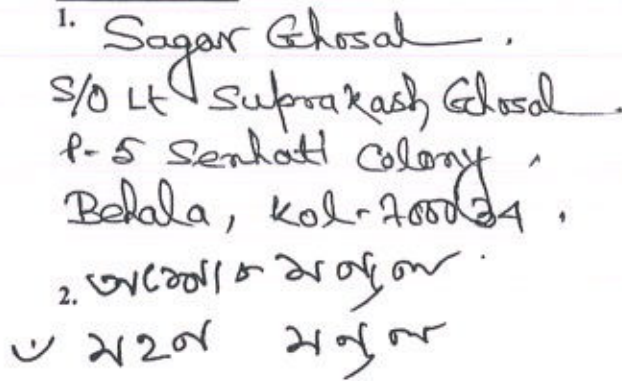 1. Sagar Ghosal.
S/O Lt Suprakash Ghosal.
P-5 Senhati Colony,
Behala, Kol-700034.
2. অশোক মন্ডল
মন্ডল